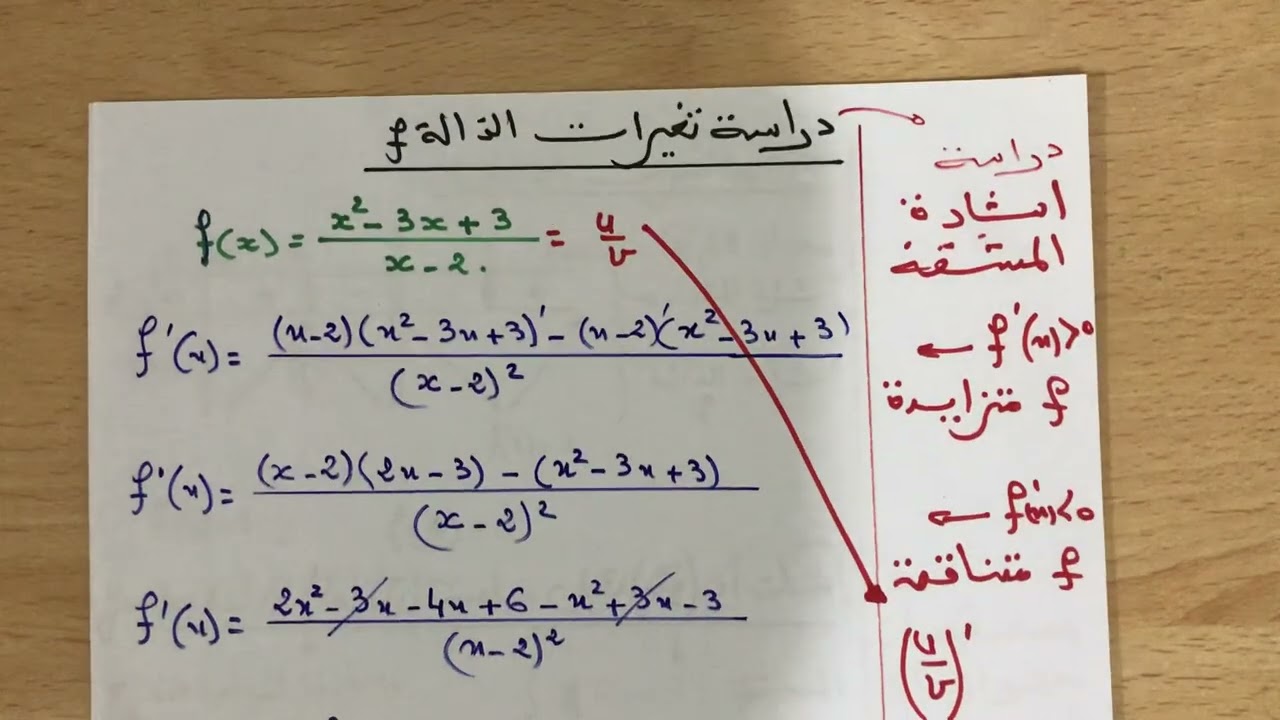 دراسة تغيرات الدالة f
f(x) = (x² - 3x + 3)/(x - 2) = u/v
f'(x) = ((x-2)(x² - 3x + 3)' - (x-2)'(x² - 3x + 3))/(x-2)²
f'(x) = ((x-2)(2x-3) - (x² - 3x + 3))/(x-2)²
f'(x) = (2x² - 3x - 4x + 6 - x² + 3x - 3)/(x-2)²
دراسة
اشادة
المشتقة
f'(x)>0 ←
f متزايدة
f'(x)<0 ←
f متناقصة
(u/v)'